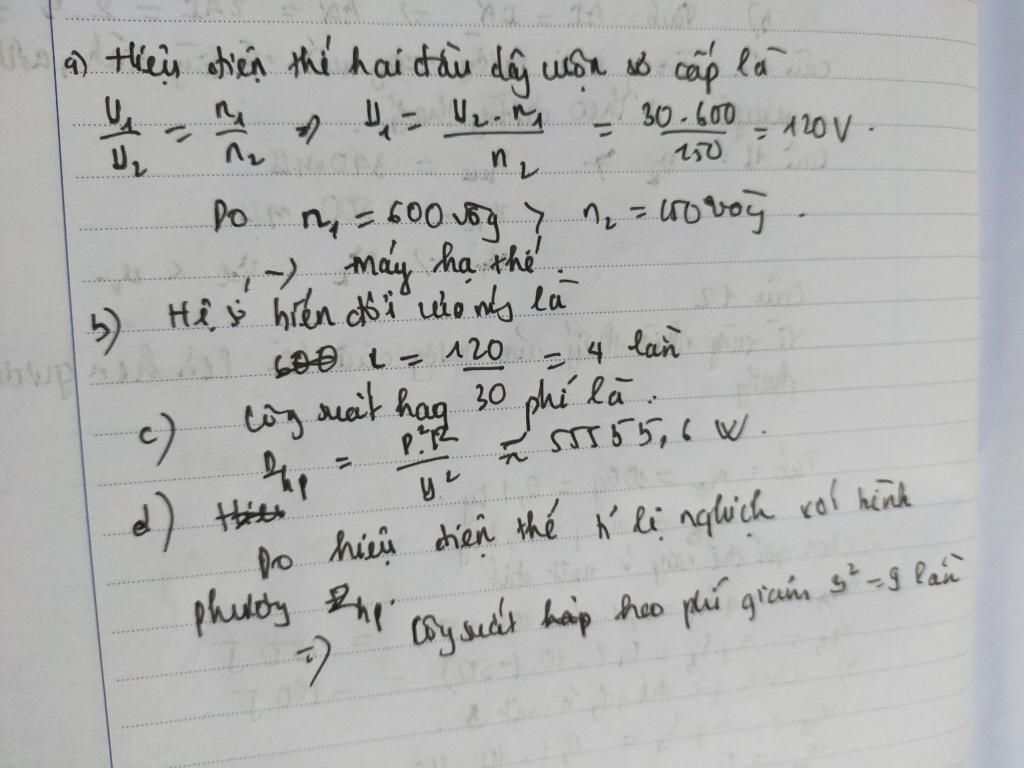 a) Hiệu điện thế hai đầu dây cuộn sơ cấp là
U₁/U₂ = n₁/n₂ => U₁ = U₂.n₁/n₂ = 30.600/150 = 120V.
Do n₁ = 600 vòng > n₂ = 150 vòng.
-> máy hạ thế.
b) Hệ số biến đổi của máy là
= 120/30 = 4 lần
c) Công suất hao phí là.
P_hp = P².R/U² ≈ 55555,6 W.
d) Do hiệu điện thế tỉ lệ nghịch với bình
phương P_hp.
=> Công suất hao phí giảm 3² = 9 lần